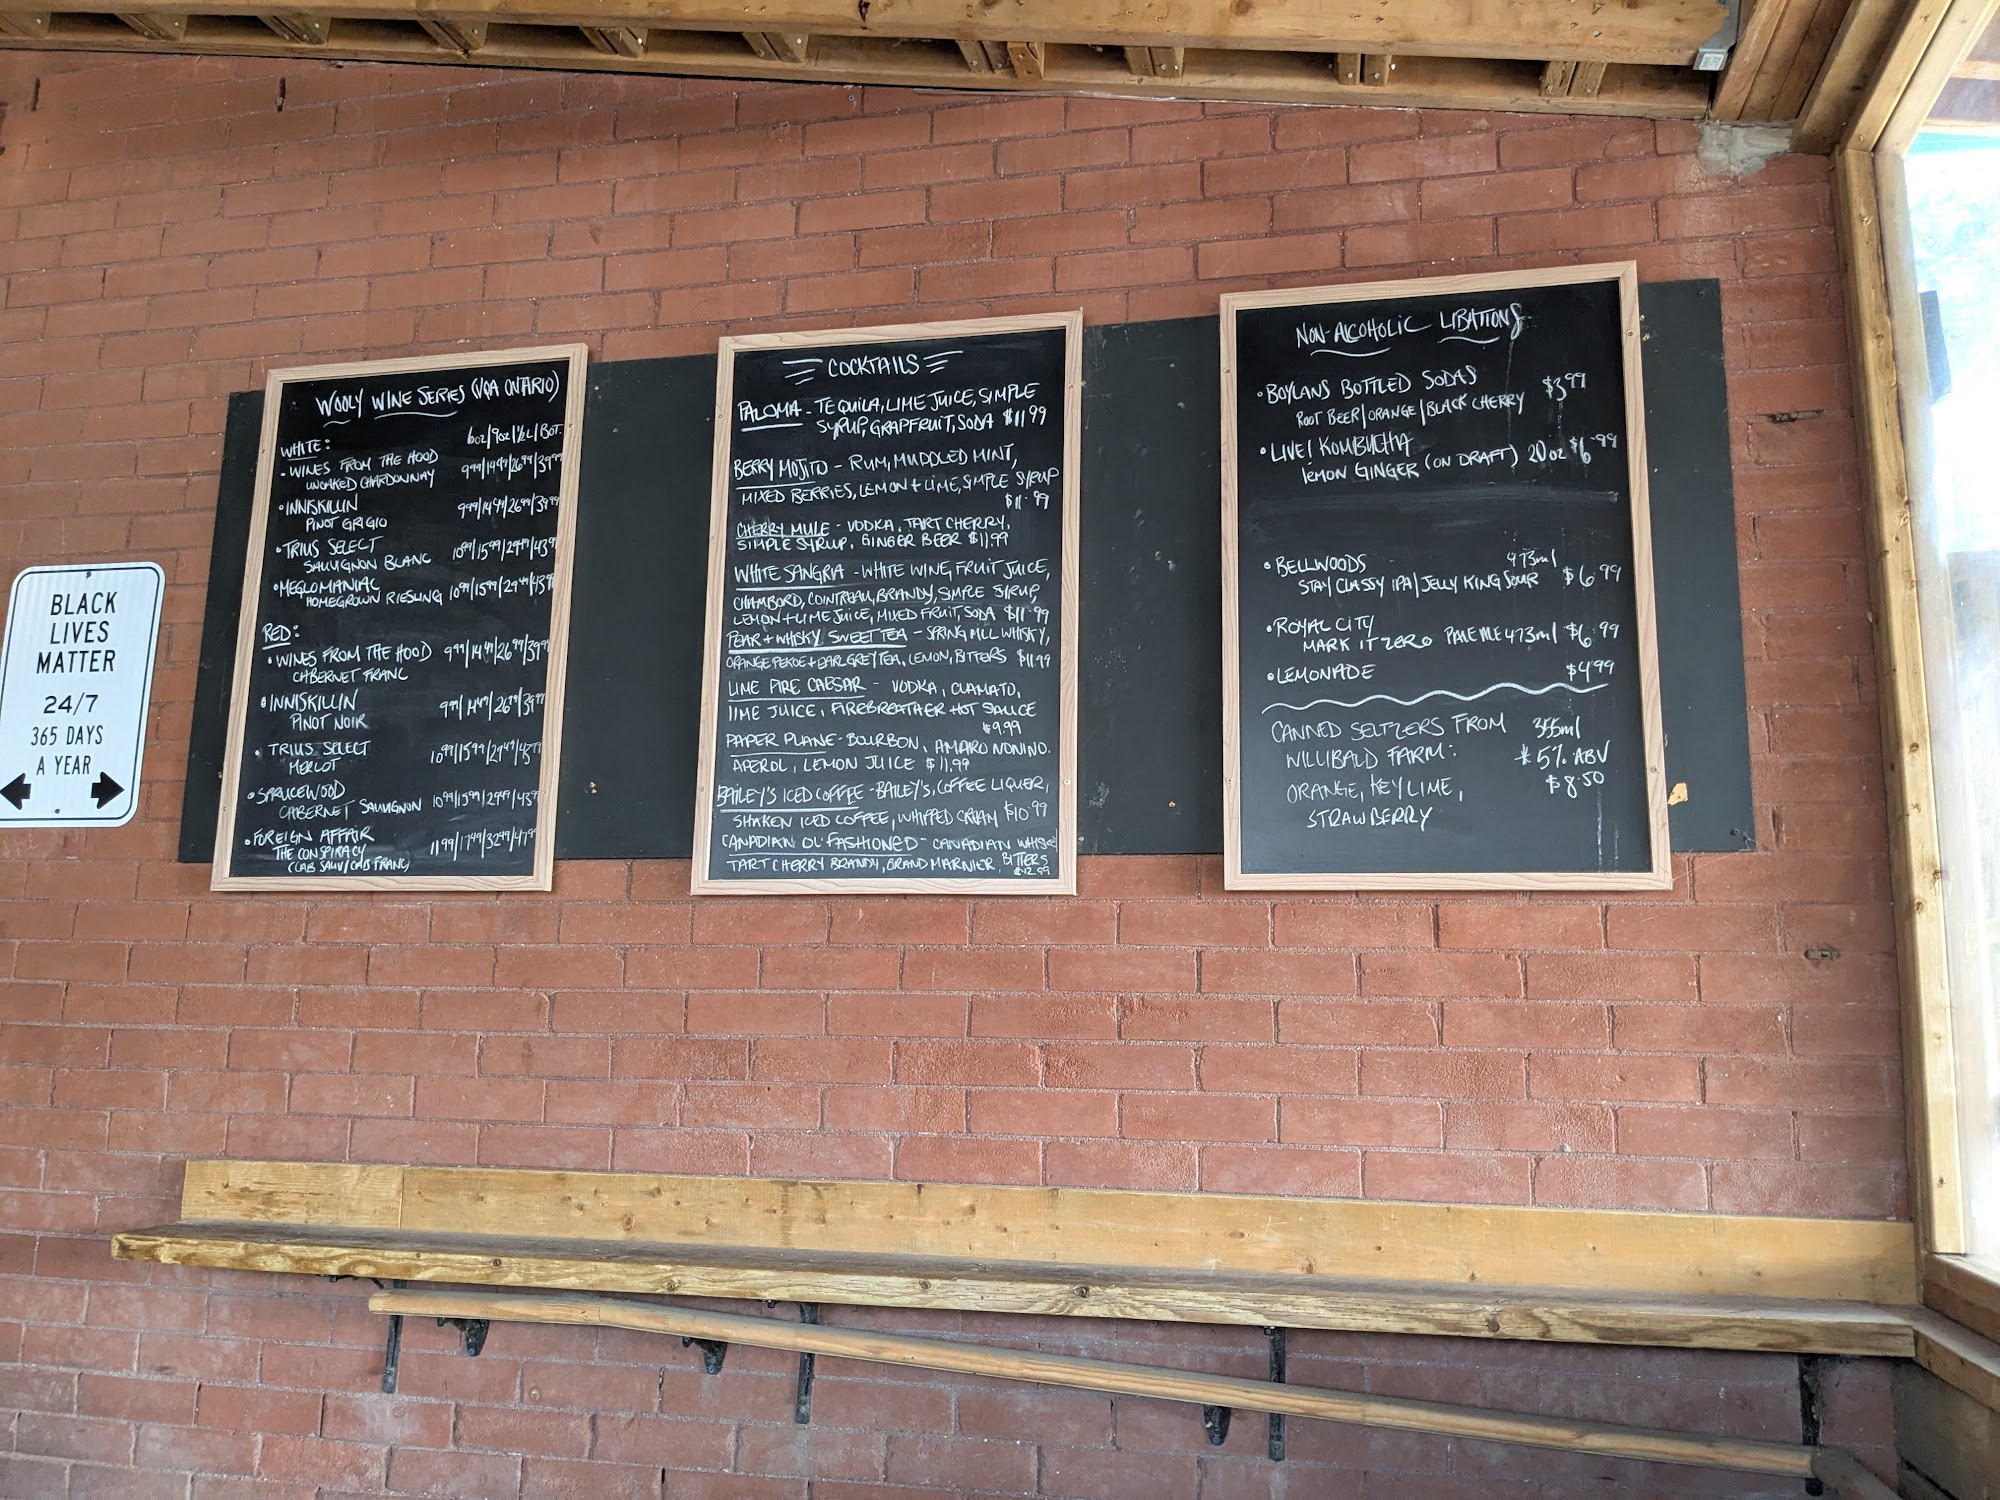 BLACK
LIVES
MATTER
24/7
365 DAYS
A YEAR
WOOLY WINE SERIES (VQA ONTARIO)
WHITE: 6oz/9oz/½L/BOT.
• WINES FROM THE HOOD 9⁹⁹/14⁴⁹/26⁹⁹/39⁹⁹
UNOAKED CHARDONNAY
• INNISKILLIN 9⁹⁹/14⁴⁹/26⁹⁹/39⁹⁹
PINOT GRIGIO
• TRIUS SELECT 10⁹⁹/15⁹⁹/29⁴⁹/43⁹⁹
SAUVIGNON BLANC
• MEGLOMANIAC 10⁹⁹/15⁹⁹/29⁴⁹/43⁹⁹
HOMEGROWN RIESLING
RED:
• WINES FROM THE HOOD 9⁹⁹/14⁴⁹/26⁹⁹/39⁹⁹
CABERNET FRANC
• INNISKILLIN 9⁹⁹/14⁴⁹/26⁹⁹/39⁹⁹
PINOT NOIR
• TRIUS SELECT 10⁹⁹/15⁹⁹/29⁴⁹/43⁹⁹
MERLOT
• SPRUCEWOOD
CABERNET SAUVIGNON 10⁹⁹/15⁹⁹/29⁴⁹/43⁹⁹
• FOREIGN AFFAIR 11⁹⁹/17⁴⁹/32⁴⁹/47⁹⁹
THE CONSPIRACY
(CAB SAUV/CAB FRANC)
COCKTAILS
PALOMA - TEQUILA, LIME JUICE, SIMPLE
SYRUP, GRAPFRUIT, SODA $11.99
BERRY MOJITO - RUM, MUDDLED MINT,
MIXED BERRIES, LEMON + LIME, SIMPLE SYRUP
$11.99
CHERRY MULE - VODKA, TART CHERRY,
SIMPLE SYRUP, GINGER BEER $11.99
WHITE SANGRIA - WHITE WINE, FRUIT JUICE,
CHAMBORD, COINTREAU, BRANDY, SIMPLE SYRUP,
LEMON + LIME JUICE, MIXED FRUIT, SODA $11.99
PEAR + WHISKY SWEET TEA - SPRING MILL WHISKY,
ORANGE PEKOE + EARL GREY TEA, LEMON, BITTERS $11.99
LIME FIRE CAESAR - VODKA, CLAMATO,
LIME JUICE, FIREBREATHER HOT SAUCE
$9.99
PAPER PLANE - BOURBON, AMARO NONINO.
APEROL, LEMON JUICE $11.99
BAILEY'S ICED COFFEE - BAILEY'S, COFFEE LIQUER,
SHAKEN ICED COFFEE, WHIPPED CREAM $10.99
CANADIAN OL' FASHIONED - CANADIAN WHISKY
TART CHERRY BRANDY, GRAND MARNIER, BITTERS
$12.99
NON-ALCOHOLIC LIBATIONS
• BOYLANS BOTTLED SODAS $3.99
ROOT BEER/ORANGE/BLACK CHERRY
• LIVE! KOMBUCHA
LEMON GINGER (ON DRAFT) 20oz $6.99
• BELLWOODS 473ml
STAY CLASSY IPA/JELLY KING SOUR $6.99
• ROYAL CITY
MARK IT ZERO PALE ALE 473ml $6.99
• LEMONADE $4.99
CANNED SELTZERS FROM 355ml
WILLIBALD FARM: * 5% ABV
ORANGE, KEY LIME, $8.50
STRAWBERRY